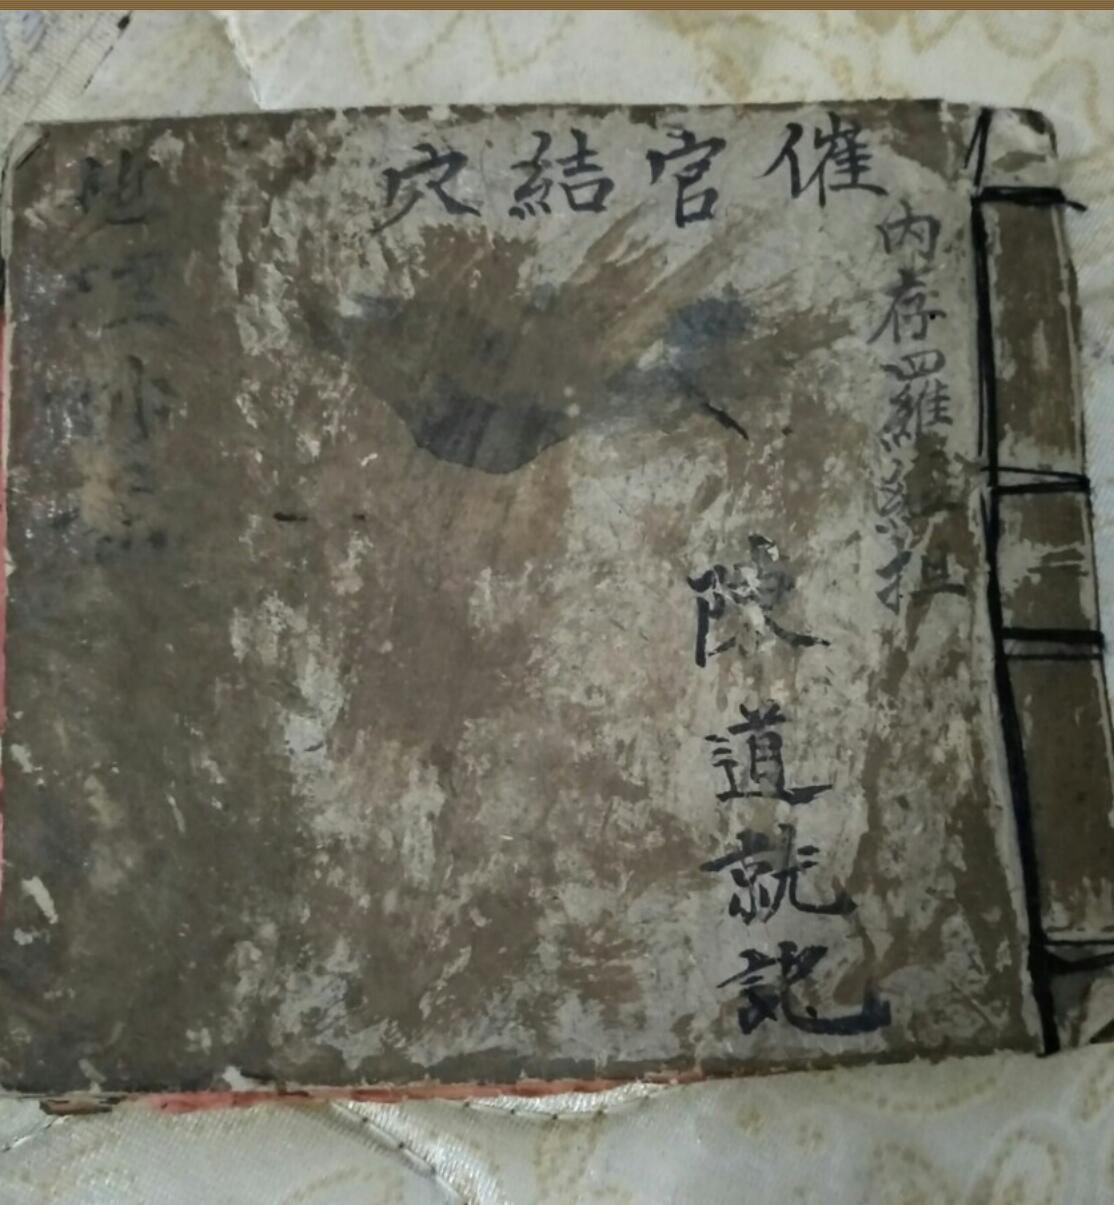 催官結穴
內存四羅經担
陳道就記
地理